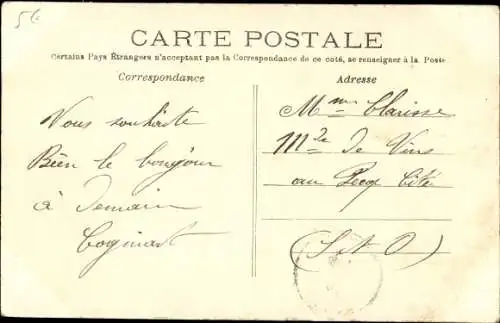 5c
CARTE POSTALE
Certains Pays Étrangers n'acceptant pas la Correspondance de ce coté, se renseigner à la Poste
Correspondance
Vous souhaite
Bien le bonjour
à Demain
Adresse
Mme Clarisse
Mde de Vins
au Pecq Cité
(S et O)